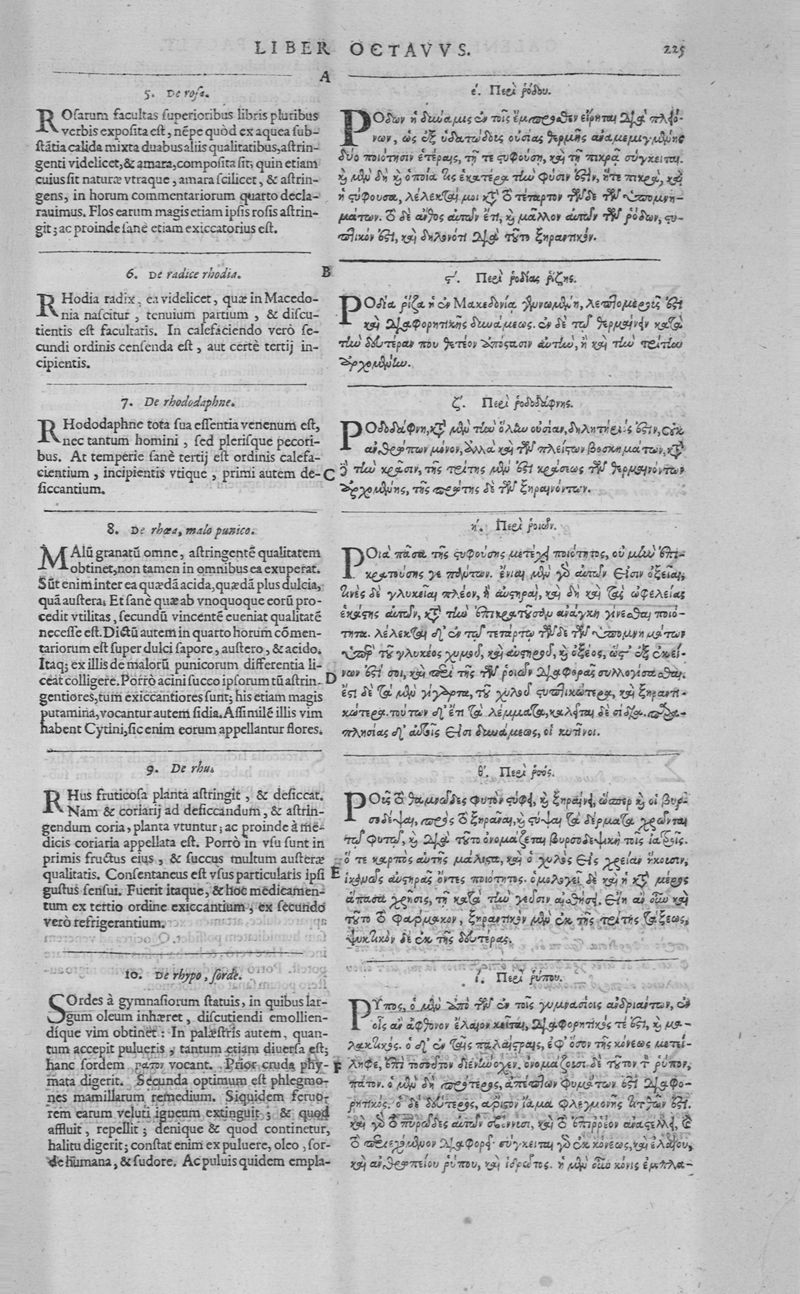 LIBER OCTAVVS. 225
A
5. De rosa.
ROsarum facultas superioribus libris pluribus
verbis exposita est, nẽpe quòd ex aquea sub-
stãtia calida mixta duabus aliis qualitatibus, astrin-
genti videlicet, & amara, composita sit; quin etiam
cuius sit naturæ vtraque, amara scilicet, & astrin-
gens, in horum commentariorum quarto decla-
rauimus. Flos earum magis etiam ipsis rosis astrin-
git; ac proinde sanè etiam exiccatorius est.
6. De radice rhodia. B
RHodia radix, ea videlicet, quæ in Macedo-
nia nascitur, tenuium partium, & discu-
tientis est facultatis. In calefaciendo verò se-
cundi ordinis censenda est, aut certè tertij in-
cipientis.
7. De rhododaphne.
RHododaphne tota sua essentia venenum est,
nec tantum homini, sed plerisque pecori-
bus. At temperie sanè tertij est ordinis calefa-
cientium, incipientis vtique, primi autem de- C
siccantium.
8. De rhœa, malo punico.
MAlũ granatũ omne, astringentẽ qualitatem
obtinet, non tamen in omnibus ea exuperat.
Sũt enim inter ea quædã acida, quædã plus dulcia,
quã austera. Et sanè quæ ab vnoquoque eorũ pro-
cedit vtilitas, secundũ vincentẽ eueniat qualitatẽ
necesse est. Dictũ autem in quarto horum cõmen-
tariorum est super dulci sapore, austero, & acido.
Itaq; ex illis de malorũ punicorum differentia li-
ceat colligere. Porrò acini succo ipsorum tũ astrin- D
gentiores, tum exiccantiores sunt; his etiam magis
putamina, vocantur autem sidia. Assimilẽ illis vim
habent Cytini, sic enim eorum appellantur flores.
9. De rhu.
RHus fruticosa planta astringit, & desiccat.
Nam & coriarij ad desiccandum, & astrin-
gendum coria, planta vtuntur; ac proinde à me-
dicis coriaria appellata est. Porrò in vsu sunt in
primis fructus eius, & succus multum austeræ
qualitatis. Consentaneus est vsus particularis ipsi E
gustus sensui. Fuerit itaque, & hoc medicamen-
tum ex tertio ordine exiccantium, ex secundo
verò refrigerantium.
10. De rhypo, sorde.
SOrdes à gymnasiorum statuis, in quibus lar-
gum oleum inhæret, discutiendi emollien-
díque vim obtinet: In palæstris autem, quan-
tum accepit pulueris, tantum etiam diuersa est;
hanc sordem πάτον vocant. Prior cruda phy- F
mata digerit. Secunda optimum est phlegmo-
nes mamillarum remedium. Siquidem feruo-
rem earum veluti igneum extinguit; & quod
affluit, repellit; denique & quod continetur,
halitu digerit; constat enim ex puluere, oleo, sor-
de humana, & sudore. Ac puluis quidem empla-
ε΄. Περὶ ῥόδου.
ΡΟδων ἡ δύναμις ἐν τοῖς ἔμπροσθεν εἴρηται διὰ πλειό-
νων, ὡς ἐξ ὑδατώδους οὐσίας θερμῆς ἀναμεμιγμένης
δύο ποιότησιν ἑτέραις, τῇ τε στυφούσῃ, καὶ τῇ πικρᾷ σύγκειται.
καὶ μὲν δὴ καὶ ὁποία τις ἑκατέρα τὴν φύσιν ἐστὶν, ἥτε πικρὰ, καὶ
ἡ στύφουσα, λέλεκταί μοι κατὰ τὸ τέταρτον τῶνδε τῶν ὑπομνη-
μάτων. τὸ δὲ ἄνθος αὐτῶν ἔτι, καὶ μᾶλλον αὐτῶν τῶν ῥόδων, στυ-
πτικόν ἐστι, καὶ δηλονότι διὰ τοῦτο ξηραντικόν.
ϛ΄. Περὶ ῥοδίας ῥίζης.
ΡΟδία ῥίζα ἡ ἐν Μακεδονίᾳ γεννωμένη, λεπτομερής ἐστι
καὶ διαφορητικῆς δυνάμεως. ἐν δὲ τῷ θερμαίνειν κατὰ
τὴν δευτέραν που θετέον ἀπόστασιν αὐτὴν, ἢ καὶ τὴν τρίτην
ἀρχομένην.
ζ΄. Περὶ ῥοδοδάφνης.
ΡΟδοδάφνη, κατὰ μὲν τὴν ὅλην οὐσίαν, δηλητήριός ἐστιν, οὐκ
ἀνθρώπων μόνον, ἀλλὰ καὶ τῶν πλείστων βοσκημάτων, κατὰ
δὲ τὴν κρᾶσιν, τῆς τρίτης μέν ἐστι κράσεως τῶν θερμαινόντων
ἀρχομένης, τῆς πρώτης δὲ τῶν ξηραινόντων.
η΄. Περὶ ῥοιῶν.
ΡΟιὰ πᾶσα τῆς στυφούσης μετέχει ποιότητος, οὐ μὴν ἐπι-
κρατούσης γε πάντων. ἔνιαι μὲν γὰρ αὐτῶν εἰσιν ὀξεῖαι,
τινὲς δὲ γλυκεῖαι πλέον, ἢ αὐστηραὶ, καὶ δὴ καὶ τὰς ὠφελείας
ἑκάστης αὐτῶν, κατὰ τὴν ἐπικρατοῦσαν ἀνάγκη γίνεσθαι ποιό-
τητα. λέλεκται δ' ἐν τῷ τετάρτῳ τῶνδε τῶν ὑπομνημάτων
ὑπὲρ τοῦ γλυκέος χυμοῦ, καὶ αὐστηροῦ, καὶ ὀξέος, ὥστ' ἐξ ἐκεί-
νων ἐστί σοι, καὶ περὶ τῆς τῶν ῥοιῶν διαφορᾶς συλλογίσασθαι.
ἔστι δὲ τὰ μὲν γίγαρτα, τοῦ χυλοῦ στυπτικώτερα, καὶ ξηραντι-
κώτερα. τούτων δ' ἔτι τὰ λέμματα, καλεῖται δὲ σίδια. παρα-
πλησίας δ' αὐτοῖς εἰσι δυνάμεως, οἱ κυτῖνοι.
θ΄. Περὶ ῥοός.
ΡΟῦς τὸ θαμνῶδες φυτὸν στύφει, καὶ ξηραίνει, ὥσπερ καὶ οἱ βυρ-
σοδέψαι, πρὸς τὸ ξηρᾶναι, καὶ στύψαι τὰ δέρματα χρῶνται
τῷ φυτῷ, καὶ διὰ τοῦτο ὀνομάζεται βυρσοδεψικὴ τοῖς ἰατροῖς.
ὅ τε καρπὸς αὐτῆς μάλιστα, καὶ ὁ χυλὸς εἰς χρείαν ἥκουσιν,
ἱκανῶς αὐστηρᾶς ὄντες ποιότητος. ὁμολογεῖ δὲ καὶ ἡ κατὰ μέρος
ἅπασα χρῆσις, τῇ κατὰ τὴν γεῦσιν αἰσθήσει. εἴη ἂν οὖν καὶ
τοῦτο τὸ φάρμακον, ξηραντικὸν μὲν ἐκ τῆς τρίτης τάξεως,
ψυκτικὸν δὲ ἐκ τῆς δευτέρας.
ι΄. Περὶ ῥύπου.
ΡΥπος, ὁ μὲν ἀπὸ τῶν ἐν τοῖς γυμνασίοις ἀνδριάντων, ἐν
οἷς ἂν ἄφθονον ἔλαιον κεῖται, διαφορητικός τέ ἐστι, καὶ μα-
λακτικός. ὁ δ' ἐν ταῖς παλαίστραις, ἐφ' ὅσον τῆς κόνεως μετεί-
ληφε, ἐπὶ τοσοῦτον διενήνοχεν. ὀνομάζουσι δὲ τοῦτον τὸν ῥύπον,
πάτον. ὁ μὲν δὴ πρότερος, ἀπέπτων φυμάτων ἐστὶ διαφο-
ρητικός. ὁ δὲ δεύτερος, ἄριστον ἴαμα φλεγμονῆς τιτθῶν ἐστί.
καὶ γὰρ τὸ πυρῶδες αὐτῶν σβέννυσι, καὶ τὸ ἐπιῤῥέον ἀναστέλλει, καὶ
τὸ περιεχόμενον διαφορεῖ. σύγκειται γὰρ ἐκ κόνεως, καὶ ἐλαίου,
καὶ ἀνθρωπείου ῥύπου, καὶ ἱδρῶτος. ἡ μὲν οὖν κόνις ἐμπλα-